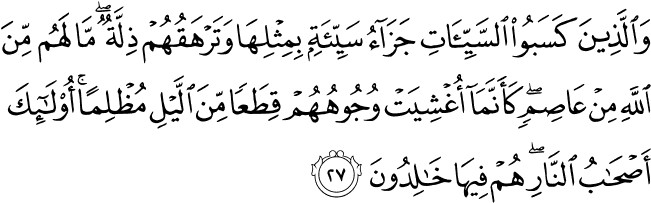 وَٱلَّذِينَ كَسَبُوا۟ ٱلسَّيِّـَٔاتِ جَزَآءُ سَيِّئَةٍۭ بِمِثْلِهَا وَتَرْهَقُهُمْ ذِلَّةٌ ۖ مَّا لَهُم مِّنَ
ٱللَّهِ مِنْ عَاصِمٍ ۖ كَأَنَّمَآ أُغْشِيَتْ وُجُوهُهُمْ قِطَعًا مِّنَ ٱلَّيْلِ مُظْلِمًا ۚ أُو۟لَـٰٓئِكَ
أَصْحَـٰبُ ٱلنَّارِ ۖ هُمْ فِيهَا خَـٰلِدُونَ ٢٧